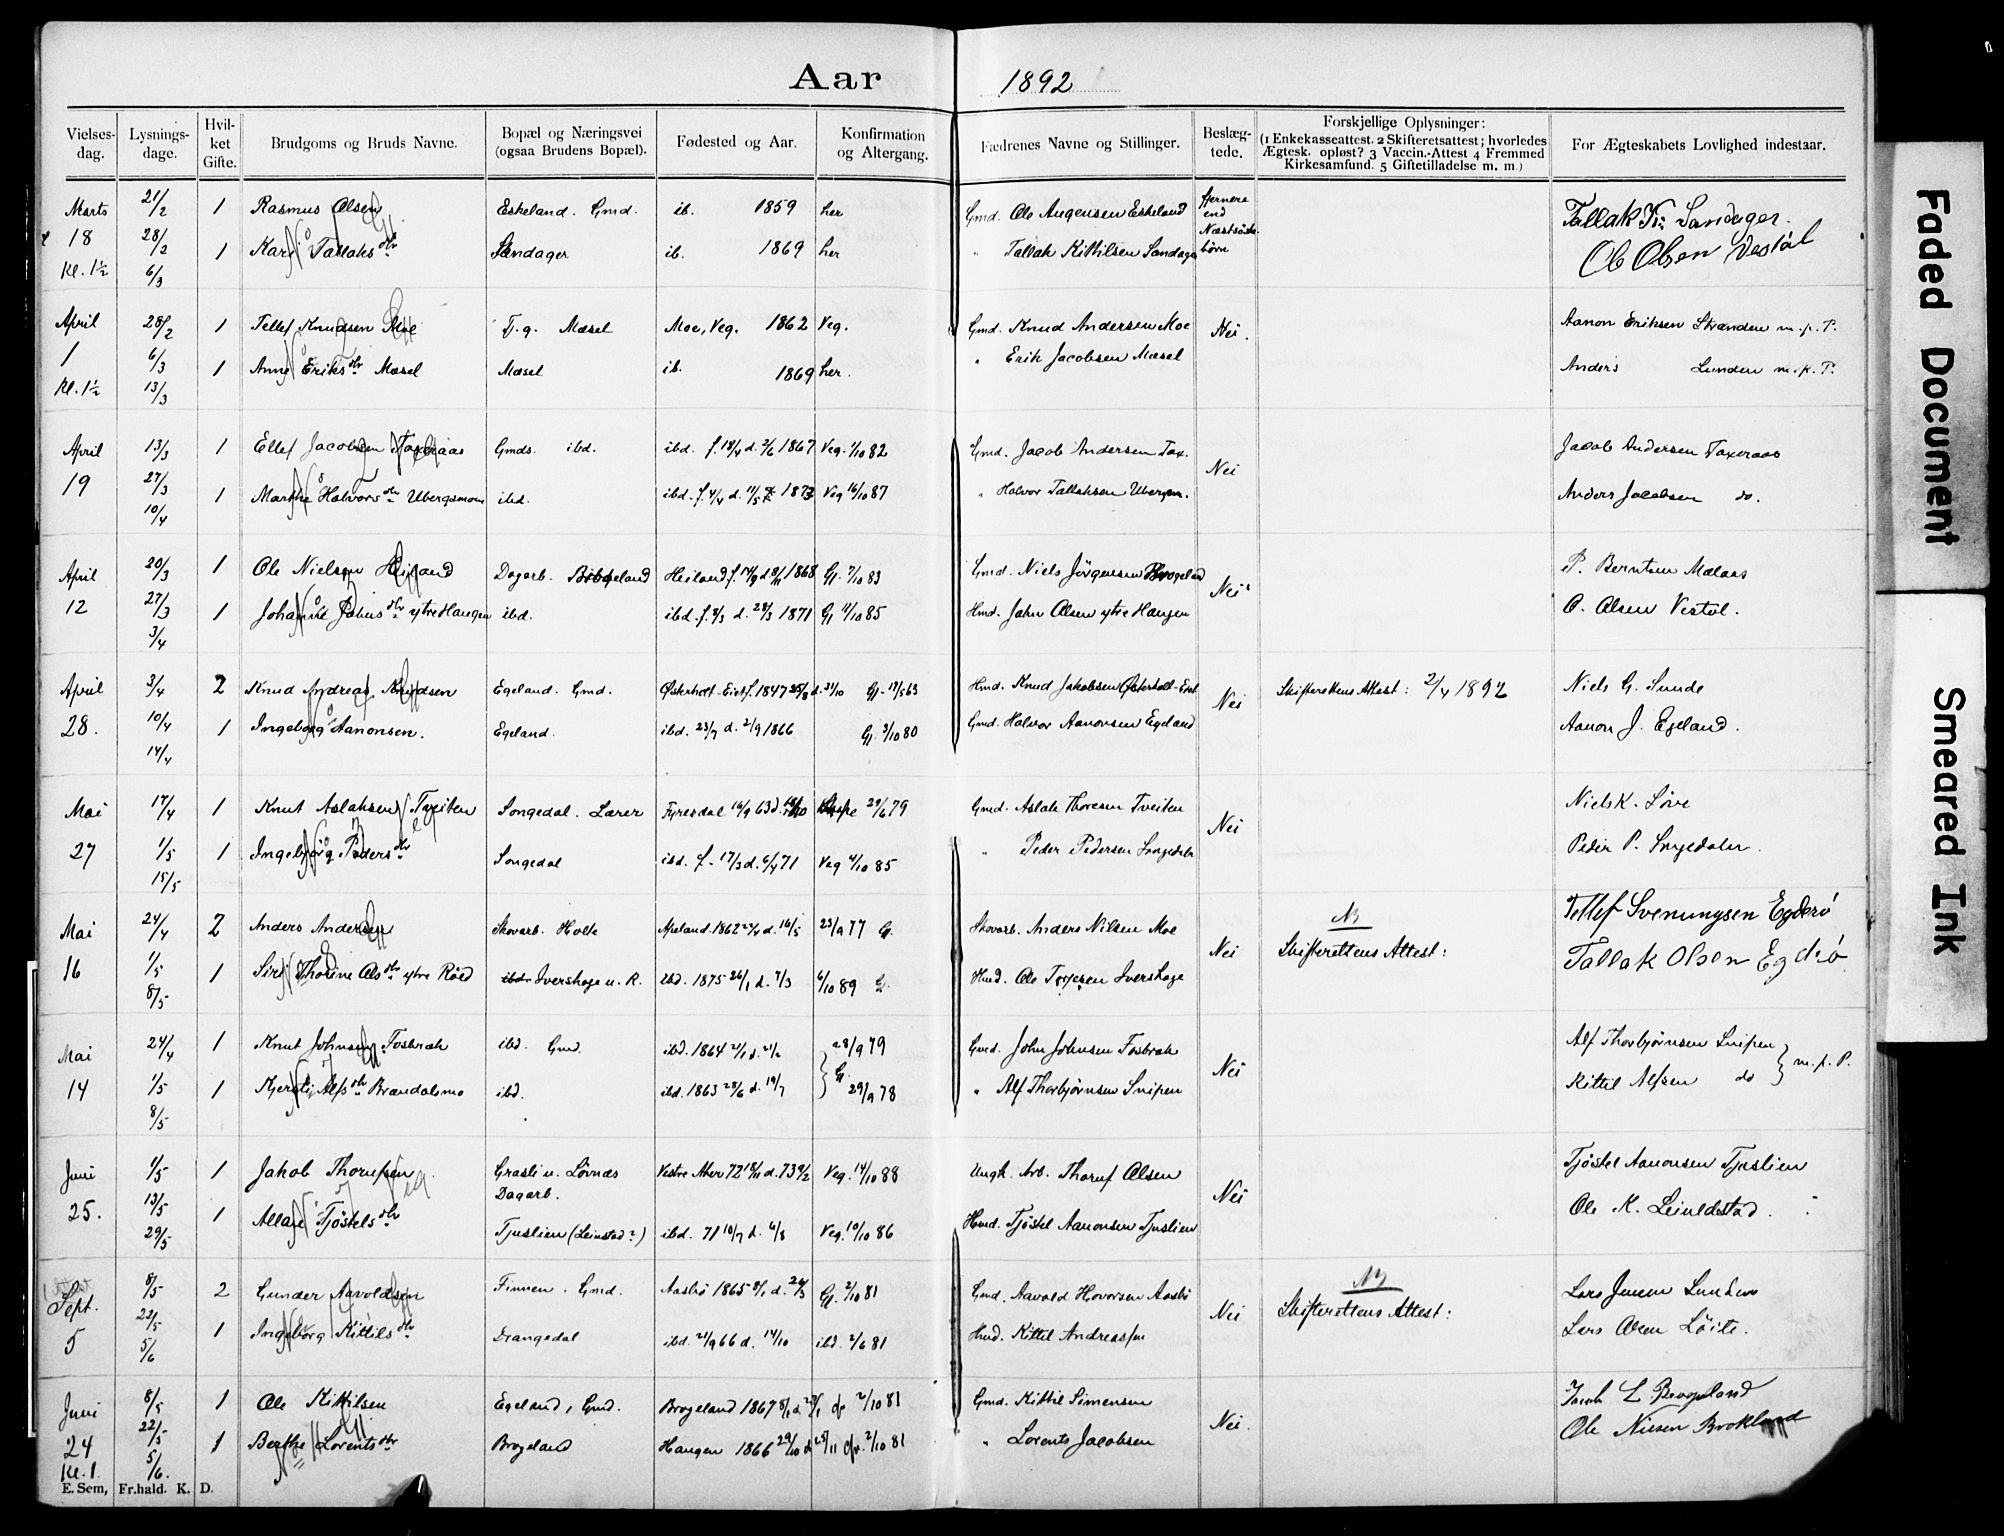 Aar 1892
Vielses-dag. Lysnings-dage. Hvil-ket Gifte. Brudgoms og Bruds Navne. Bopæl og Næringsvei (ogsaa Brudens Bopæl). Fødested og Aar. Konfirmation og Altergang. Fædrenes Navne og Stillinger. Beslæg-tede. Forskjellige Oplysninger: (1 Enkekasseattest. 2 Skifteretsattest; hvorledes Ægtesk. opløst? 3 Vaccin.-Attest 4 Fremmed Kirkesamfund. 5 Giftetilladelse m. m.) For Ægteskabets Lovlighed indestaar.
Marts 21/2 1 Rasmus Olsen Eskeland. Gmd. ib. 1859 her Gmd. Ole Augensen Eskeland fjernere end Næstsøsk. børn Tallak K. Sandager.
18 28/2 1 Kari Tallaksdtr Sandager ib. 1869 her " Tallak Kittilsen Sandager Ole Olsen Vestøl
Kl. 1½ 6/3
April 28/2 1 Tellef Knudsen Moe T.g. Mæsel Moe, Veg. 1862 Veg. Gmd. Knud Andersen Moe Nei. Aanon Eriksen Stranden m.p.P.
1 6/3 1 Anne Eriksdtr Mæsel Mæsel ib. 1869 her. " Erik Jacobsen Mæsel Anders Lunden m.p.P.
Kl. 1½ 13/3
April 13/3 1 Ellef Jacobsen Taxeraas Gmds. ibd. ibd. f. 18/4 d. 2/6 1867 Veg. 1/10 82 Gmd. Jacob Andersen Tax. Nei Jacob Andersen Taxeraas
19 27/3 1 Marthe Halvorsdtr Ubergsmoen ibd. ibd. f. 4/4 d. 11/5 1873 Veg 16/10 87 " Halvor Tallaksen Ubergsm. Anders Jacobsen do.
10/4
April 20/3 1 Ole Nielsen Heiland Dagarb. Brogeland Heiland f. 14/9 d 8/11 1868 Gj. 7/10 83 Gmd. Niels Jörgensen Brogeland Nei P. Berntsen Mælaas
12 27/3 1 Johanne Jahnsdtr ytre Haugen ibd. ibd. f. 8/3 d. 28/3 1871 Gj 11/10 85 Hmd. Jahn Olsen ytre Haugen O. Olsen Vestøl.
3/4
April 3/4 2 Knud Andreas Knudsen Egeland. Gmd. Østerholt-Eiet f. 1847 25/8 d. 31/10 Gj. 17/5 63 Hmd. Knud Jakobsen Østerholt-Eiet Nei Skifterettens Attest: 2/4 1892 Niels G. Sunde
28. 10/4 1 Ingeborg Aanonsen. Egeland. ibd. 23/7 d. 2/9 1866 Gj. 3/10 80 Gmd. Halvor Aanonsen Egeland Aanon J. Egeland.
14/4
Mai 17/4 1 Knut Aslaksen Tveiten Songedal. Lærer Fyresdal 16/9 63 d. 29/6 79 Gmd. Aslak Thoresen Tveiten Nei Niels K. Løve
27 1/5 1 Ingebjørg Pedersdtr Songedal ibd. f. 17/3 d. 6/4 71 Veg 4/10 85 " Peder Pedersen Songedalen Peder P. Songedalen.
15/5
Mai 24/4 2 Anders Andersen Skovarb. Holte Apeland. 1862 22/4 d. 16/5 23/9 77 G. Skovarb. Anders Nilsen Moe Nei Skifterettens Attest: Tellef Svenungsen Egderø
16 1/5 1 Siri Thorine Olsdtr ytre Røed Ivershage u. R. ibd. 1875 26/1 d. 7/3 6/10 89 G. Hmd. Ole Terjesen Ivershage Tallak Olsen Egdrø
8/5
Mai 24/4 1 Knut Johnsen Fosbræk ibd. Gmd. ibd. 1864 2/1 d. 21/2 28/9 79 Gmd. John Johnsen Fosbræk Nei Alf Thorbjørnsen Snipen m.p.P.
14 1/5 1 Kjersti Alfsdtr Brændalsmo ibd. ibd. 1863 28/6 d. 19/7 G. 29/9 78 " Alf Thorbjørnsen Snipen Kittil Alfsen do
8/5
Juni 1/5 1 Jakob Thorufsen Grasli u. Lövnæs Dagarb. Vestre Aker 72 18/11 d. 73 9/2 Veg. 14/10 88 Ungk. Arb. Thoruf Olsen Nei Tjøstel Aanonsen Tjuslien
25. 13/5 1 Tjöstelsdtr Tjuslien (Leinstad?) ibd. 71 10/7 d. 6/8 Veg. 10/10 86 Hmd. Tjöstel Aanonsen Tjuslien Ole K. Leiuldstad.
29/5
Sept. 8/5 2 Gunder Aavoldsen Finnen. Gmd. Aasbö 1865 8/1 d. 26/3 Gj. 2/10 81 Gmd. Aavold Hovorsen Aasbö Nei Skifterettens Attest: Lars Jensen Lunden
5 22/5 1 Ingeborg Kittilsdtr Drangedal ibd. 21/9 66 d. 14/10 ibd. 2/6 81 Hmd. Kittil Andreassen Lars Olsen Löite.
5/6
Juni 8/5 1 Ole Kittilsen Egeland, Gmd. Brogeland 1867 8/1 2/10 81 Gmd. Kittil Simensen Nei. Jacob L Brogeland
24 22/5 1 Berthe Lorentsdtr Brogeland Haugen 1866 29/10 d 25/11 2/10 81 " Lorents Jacobsen Ole Nielsen Brokland
Kl. 1. 5/6.
E. Sem, Fr.hald. K. D.
Faded Document
Smeared Ink